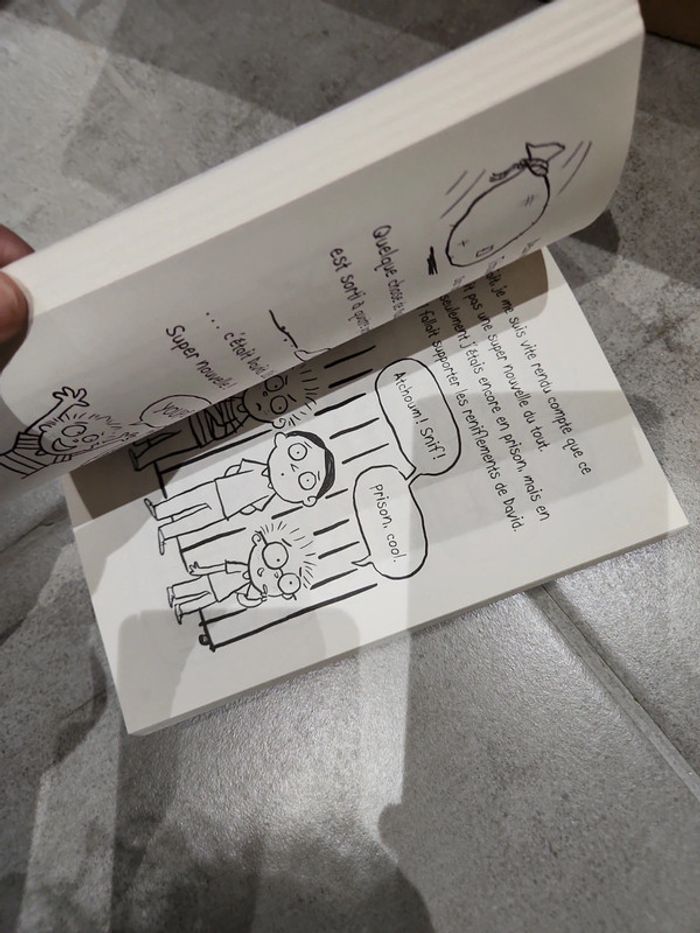 Quelque chose
est sorti à
... c'était
Super nouvelle!
je me suis vite rendu compte que ce
pas une super nouvelle du tout.
seulement j'étais encore en prison, mais en
fallait supporter les reniflements de David.
Atchoum! Snif!
Prison, cool.